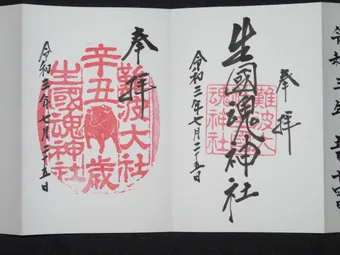 奉拝
生國魂神社
難波大社
生國魂神社
令和三年七月二十五日
奉拝
難波大社
辛丑歳
生國魂神社
令和三年七月二十五日